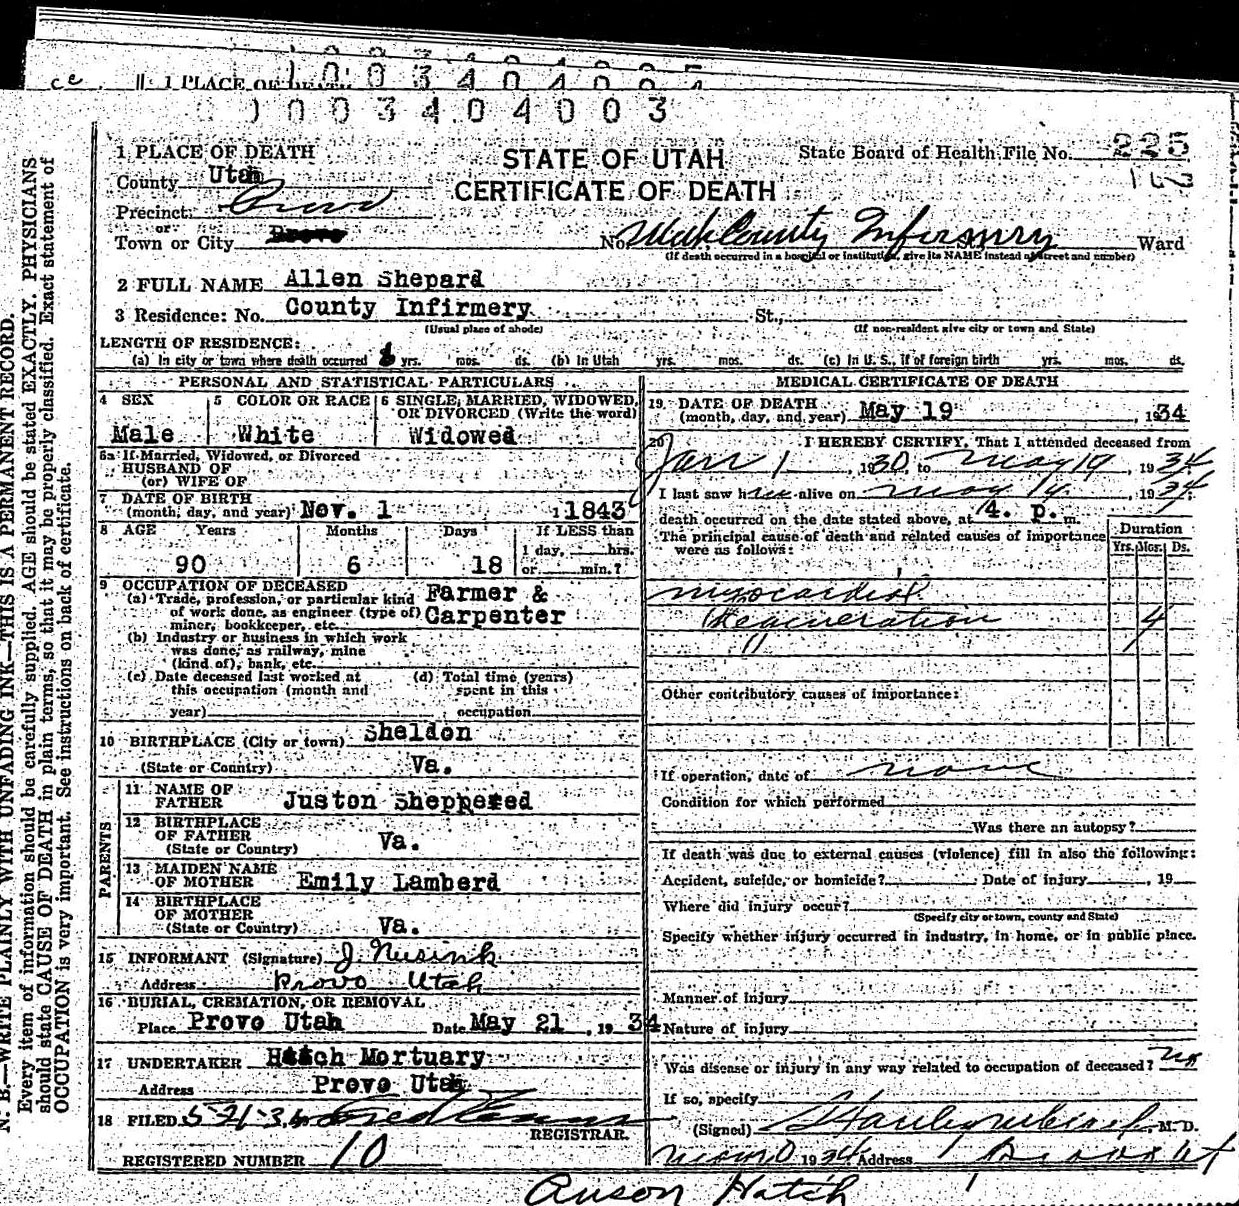 1 PLACE OF DEATH
1003404003
1 PLACE OF DEATH
STATE OF UTAH
CERTIFICATE OF DEATH
State Board of Health File No. 225
County Utah
Precinct Provo
or
Town or City Provo No. Utah County Infirmry St., Ward
(If death occurred in a hospital or institution, give its NAME instead of street and number)
2 FULL NAME Allen Shepard
3 Residence: No. County Infirmery St.,
(Usual place of abode) (If non-resident give city or town and State)
LENGTH OF RESIDENCE:
(a) In city or town where death occurred yrs. mos. ds. (b) In Utah yrs. mos. ds. (c) In U. S., if of foreign birth yrs. mos. ds.
PERSONAL AND STATISTICAL PARTICULARS
4 SEX
Male
5 COLOR OR RACE
White
6 SINGLE, MARRIED, WIDOWED,
OR DIVORCED (Write the word)
Widowed
6a If Married, Widowed, or Divorced
HUSBAND OF
(or) WIFE OF
7 DATE OF BIRTH
(month, day, and year) Nov. 1 1843
8 AGE Years Months Days If LESS than
1 day, hrs.
90 6 18 or min.?
9 OCCUPATION OF DECEASED
(a) Trade, profession, or particular kind
of work done, as engineer (type of)
miner, bookkeeper, etc.
Farmer &
Carpenter
(b) Industry or business in which work
was done, as railway, mine
(kind of), bank, etc.
(c) Date deceased last worked at
this occupation (month and
year)
(d) Total time (years)
spent in this
occupation
10 BIRTHPLACE (City or town) Sheldon
(State or Country) Va.
PARENTS
11 NAME OF
FATHER Juston Shepperd
12 BIRTHPLACE
OF FATHER
(State or Country) Va.
13 MAIDEN NAME
OF MOTHER Emily Lamberd
14 BIRTHPLACE
OF MOTHER
(State or Country) Va.
15 INFORMANT (Signature) J. Nusink
Address Provo Utah
16 BURIAL, CREMATION, OR REMOVAL
Place Provo Utah Date May 21, 1934
17 UNDERTAKER Hatch Mortuary
Address Provo Utah
18 FILED 5-21-34
REGISTRAR.
REGISTERED NUMBER 10
MEDICAL CERTIFICATE OF DEATH
19 DATE OF DEATH
(month, day, and year) May 19, 1934
20 I HEREBY CERTIFY, That I attended deceased from
Jan 1, 1930, to May 19, 1934
I last saw him alive on May 19, 1934
death occurred on the date stated above, at 4. p. m.
The principal cause of death and related causes of importance
were as follows:
Duration
Yrs. Mos. Ds.
myocardial
Degeneration 4
Other contributory causes of importance:
If operation, date of none
Condition for which performed
Was there an autopsy?
If death was due to external causes (violence) fill in also the following:
Accident, suicide, or homicide? Date of injury, 19
Where did injury occur?
(Specify city or town, county and State)
Specify whether injury occurred in industry, in home, or in public place.
Manner of injury
Nature of injury
Was disease or injury in any way related to occupation of deceased? no
If so, specify
(Signed) M. D.
1934 Address Provo Ut
Anson Hatch
N. B.—WRITE PLAINLY WITH UNFADING INK—THIS IS A PERMANENT RECORD.
Every item of information should be carefully supplied. AGE should be stated EXACTLY. PHYSICIANS
should state CAUSE OF DEATH in plain terms, so that it may be properly classified. Exact statement of
OCCUPATION is very important. See instructions on back of certificate.